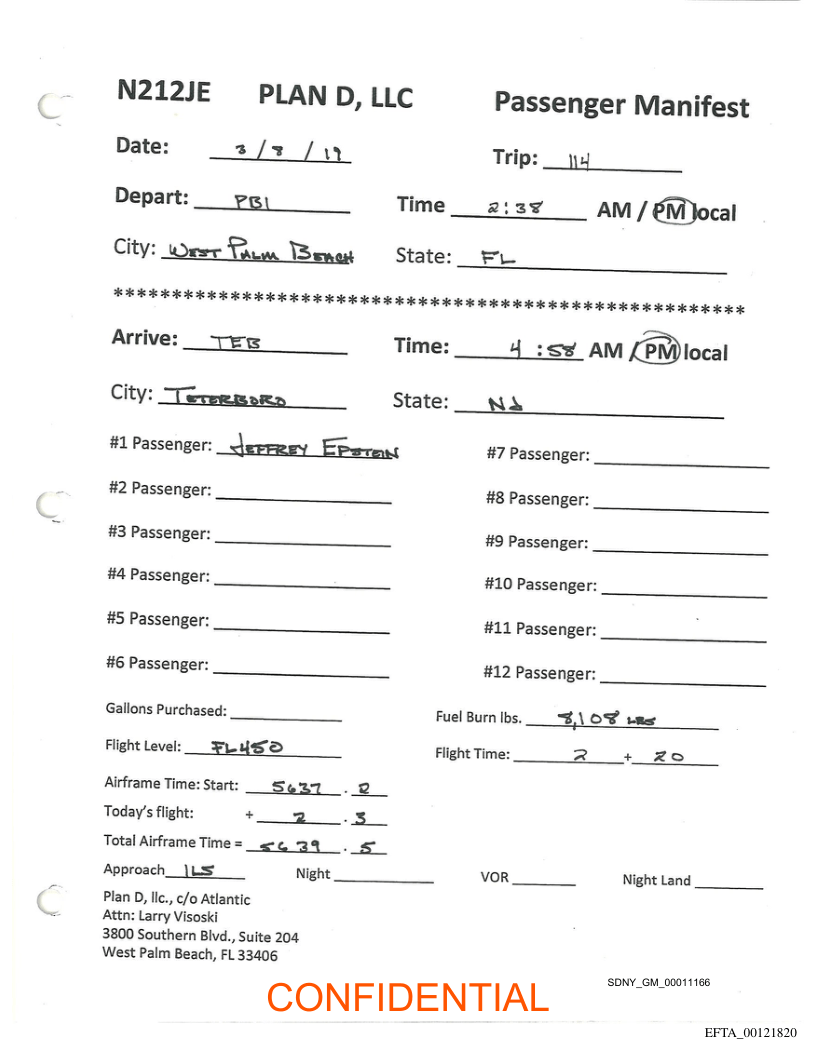 N212JE PLAN D, LLC Passenger Manifest
Date: 3 / 8 / 19 Trip: 114
Depart: PBI Time 2:38 AM / PM local
City: WEST PALM BEACH State: FL
******************************************************
Arrive: TEB Time: 4:58 AM / PM local
City: TETERBORO State: NJ
#1 Passenger: JEFFREY EPSTEIN #7 Passenger:
#2 Passenger: #8 Passenger:
#3 Passenger: #9 Passenger:
#4 Passenger: #10 Passenger:
#5 Passenger: #11 Passenger:
#6 Passenger: #12 Passenger:
Gallons Purchased: Fuel Burn lbs. 8,108 LBS
Flight Level: FL450 Flight Time: 2 + 20
Airframe Time: Start: 5637 . 2
Today's flight: + 2 . 3
Total Airframe Time = 5639 . 5
Approach ILS Night VOR Night Land
Plan D, llc., c/o Atlantic
Attn: Larry Visoski
3800 Southern Blvd., Suite 204
West Palm Beach, FL 33406
SDNY_GM_00011166
CONFIDENTIAL
EFTA_00121820